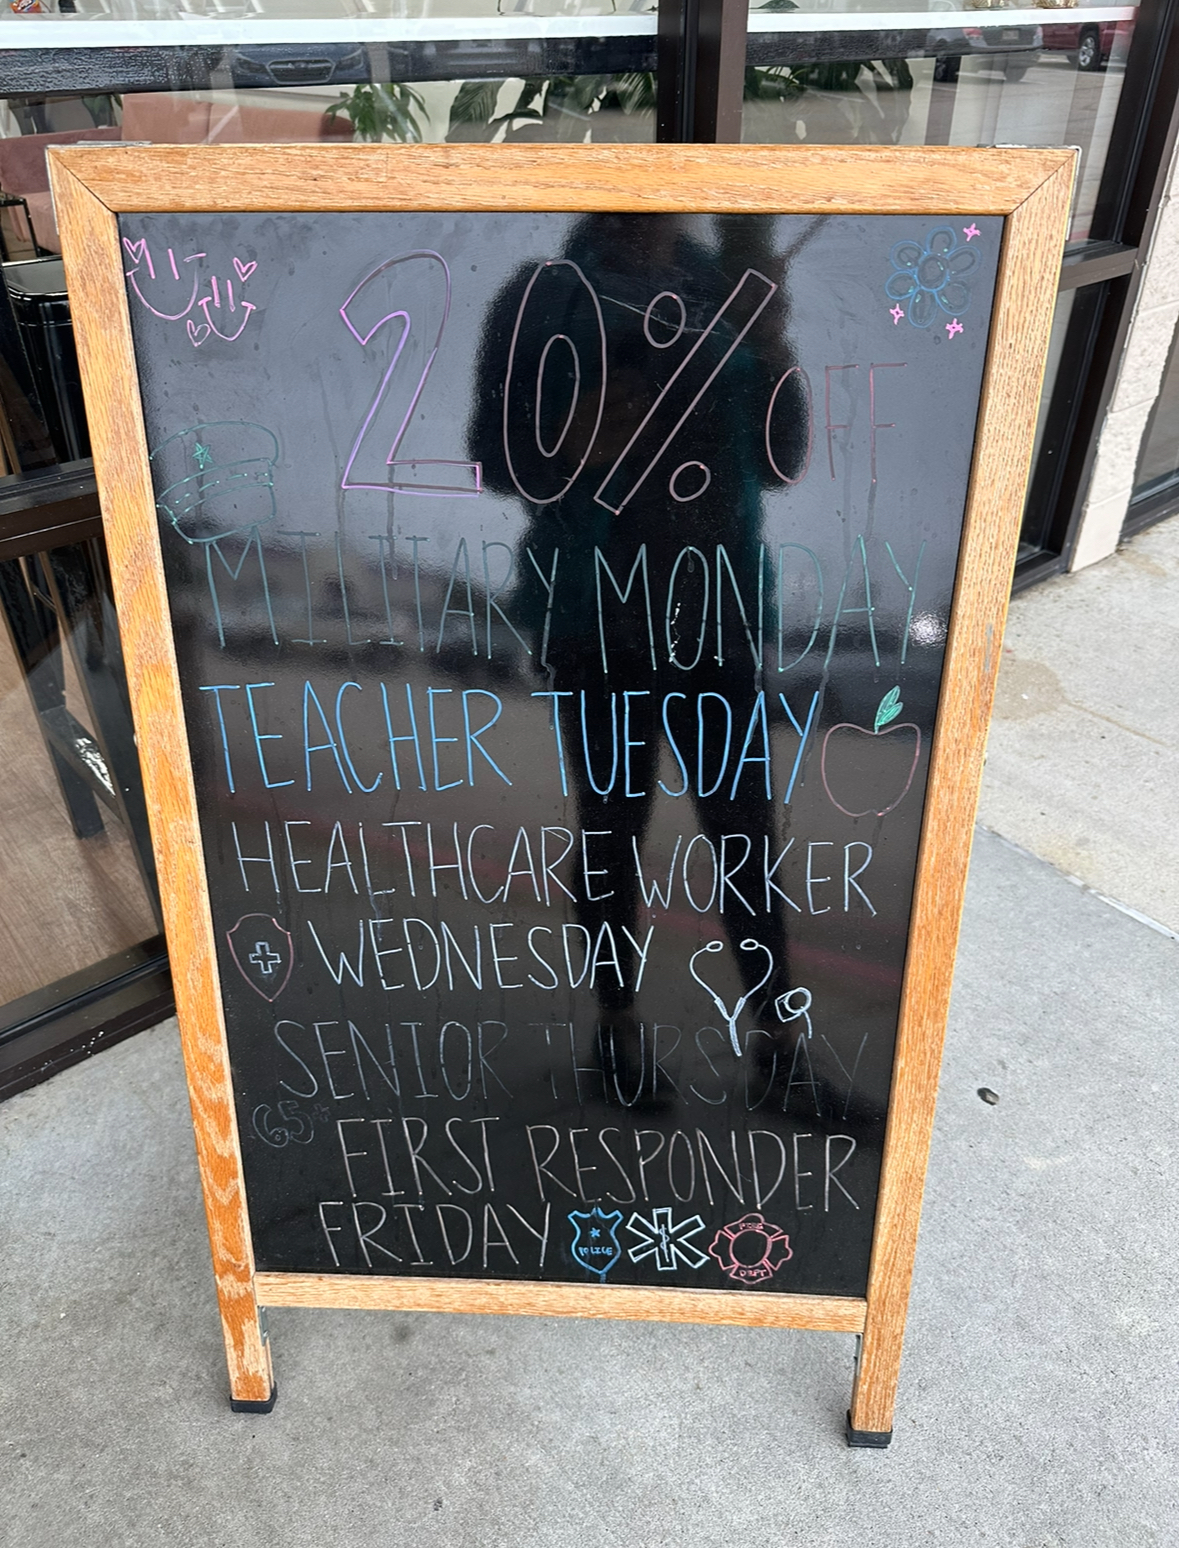 20% OFF
MILITARY MONDAY
TEACHER TUESDAY
HEALTHCARE WORKER
WEDNESDAY
SENIOR THURSDAY
65+
FIRST RESPONDER
FRIDAY
POLICE
FIRE
DEPT